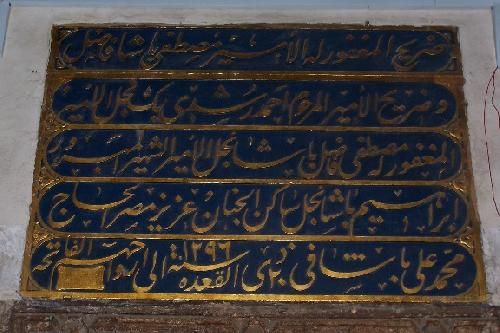 ضريح المغفور له الأمير مصطفى باشا فاضل
وضريح الأمير المرحوم احمد رشدي بك نجل الأمير
المغفور له مصطفى فاضل باشا نجل الأمير الشهير المبرور
إبراهيم باشا نجل ساكن الجنان عزيز مصر الحاج
محمد على باشا في ذي القعده سنة ١٢٩٦ الى ارواحهم الفاتحه